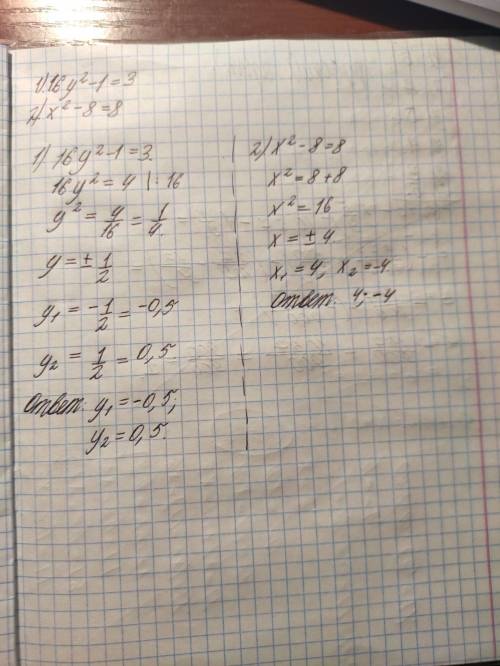 1) 16y² - 1 = 3
2) x² - 8 = 8
1) 16y² - 1 = 3.
16y² = 4 | : 16
y² = 4/16 = 1/4.
y = ± 1/2
y₁ = -1/2 = -0,5
y₂ = 1/2 = 0,5.
Ответ. y₁ = -0,5;
y₂ = 0,5.
2) x² - 8 = 8
x² = 8 + 8
x² = 16
x = ± 4.
x₁ = 4, x₂ = -4.
Ответ. 4; -4